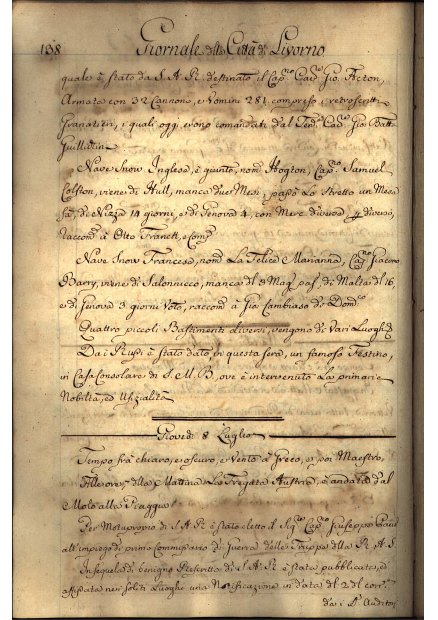 138 Giornale della Città di Livorno
quale è stato da S. A. R. destinato il Cap.no Cav. Gio. Acton,
Armata con 32 Cannone, e Uomini 281 compreso i retroscritti
Granatieri, i quali oggi erono comandati dal Ten.te Cav. Gio Batt.
Guillichin.
Nave Snow Inglese, è giunto, nom. Hogton, Cap.no Samuel
Colston, viene di Hull, manca due Mesi, passò Lo Stretto un Mese
fà, di Nizza 14 giorni, e di Genova 4, con Merce diverse, # diverso,
raccom. à Otto Franck, e Comp.
Nave Snow Francese, nom. La Felice Marianna, Cap.no Giacomo
Barry, viene di Salonnicco, manca dl 9 Mag. pas. di Malta dl 16,
e di Genova 3 giorni Voto, raccom. à Gio: Cambiaso di Dom.co
Quattro piccoli Bastimenti diversi, vengono di Vari Luoghi
Da i Russi è stato dato, in questa sera, un famoso Festino,
in Casa Consolare di S. M. B., ove è intervenuto La primaria
Nobiltà, ed Ufizialità
Giovedì 8 Luglio
Tempo frà chiaro, e oscuro, e Vento à Greco, e poi Maestro,
Alle ore 7 della Matina La Fregata Austria, è andata dal
Molo alla Piaggia
Per Motuproprio di S. A. R. è stato eletto il Sig.re Cap.no Giuseppe
all'impiego di primo Commissario di Guerra delle Truppe della R. A. S.
In sequela di benigno Rescritto di S. A. R. è stata pubblicata, ed
affissata nei soliti Luoghi una Notificazione in data del 2 del corr.te
da i S.ri Auditori